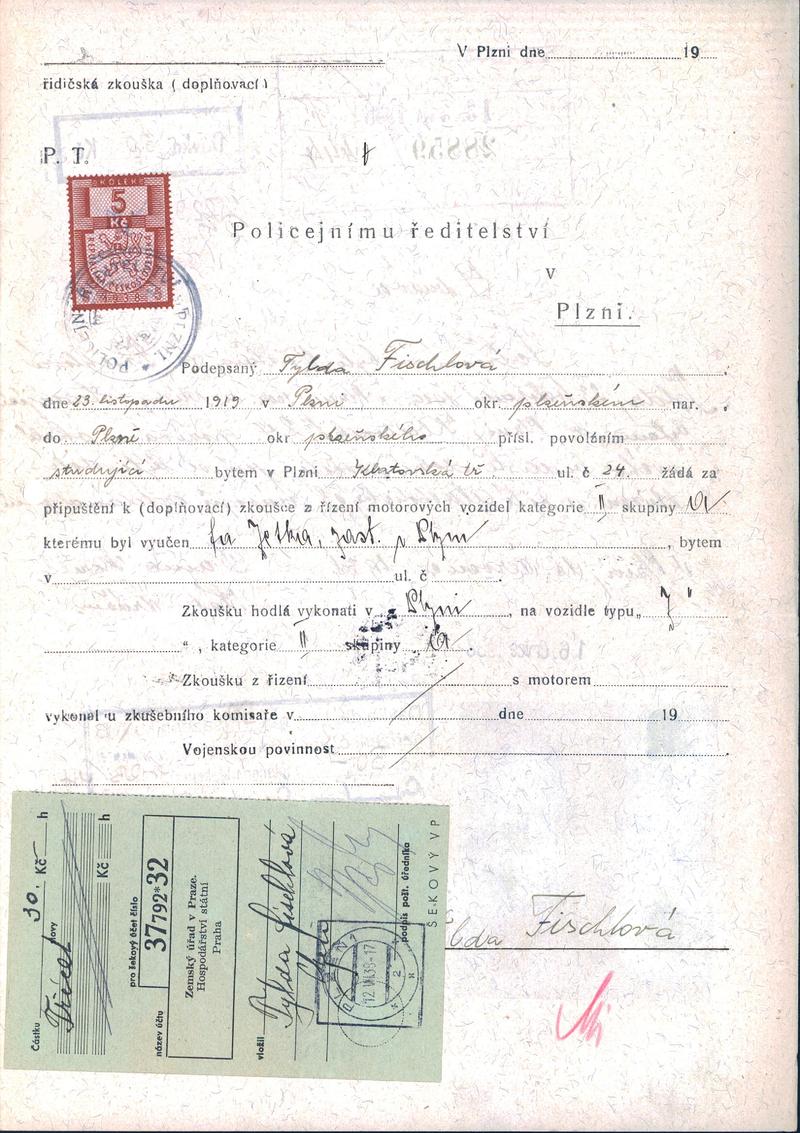 V Plzni dne 19
řidičská zkouška (doplňovací)
P. T.
KOLEK
5
Kč
Policejnímu ředitelství
v
Plzni.
Podepsaný Tylda Fischlová
dne 23. listopadu 1919 v Plzni okr. plzeňském nar.
do Plzně okr plzeňského přísl. povoláním
studující bytem v Plzni Klatovská tř ul. č 24. žádá za
připuštění k (doplňovací) zkoušce z řízení motorových vozidel kategorie II skupiny a
kterému byl vyučen fa Jetka, zast. v Plzni, bytem
v ul. č
Zkoušku hodlá vykonati v Plzni, na vozidle typu „J"
", kategorie II skupiny a
Zkoušku z řízení s motorem
vykonal u zkušebního komisaře v dne 19
Vojenskou povinnost
Částku 30.- Kč h
Třicet
Kč h
pro šekový účet číslo
37792*32
název účtu
Zemský úřad v Praze.
Hospodářství státní
Praha
vložil Tylda Fischlová
Plzeň
podpis pošt. úředníka
ŠEKOVÝ VP
12.VI.39-17
lda Fischlová